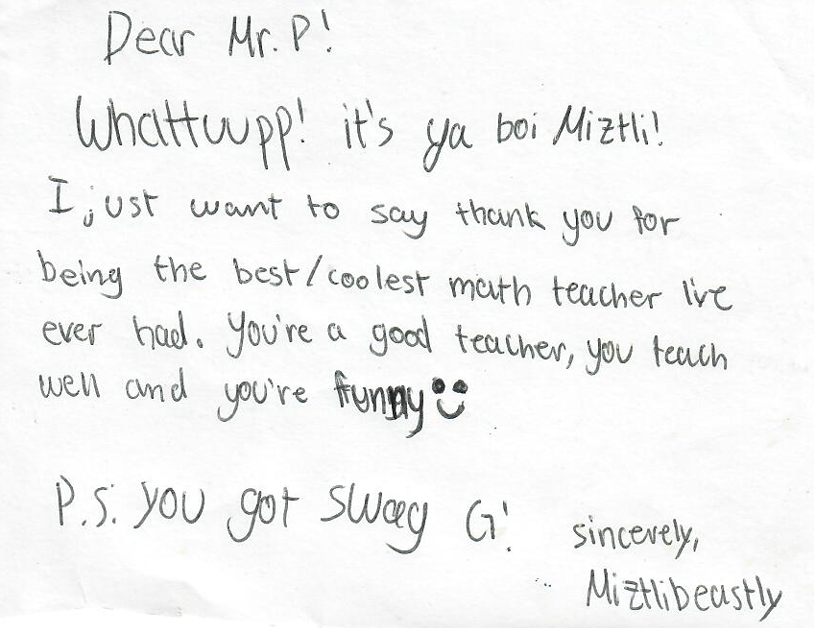 Dear Mr. P!
Whattuupp! it's ya boi Miztli!
I just want to say thank you for
being the best/coolest math teacher I've
ever had. You're a good teacher, you teach
well and you're funny
P.S. you got swag G!
sincerely,
Miztlibeastly